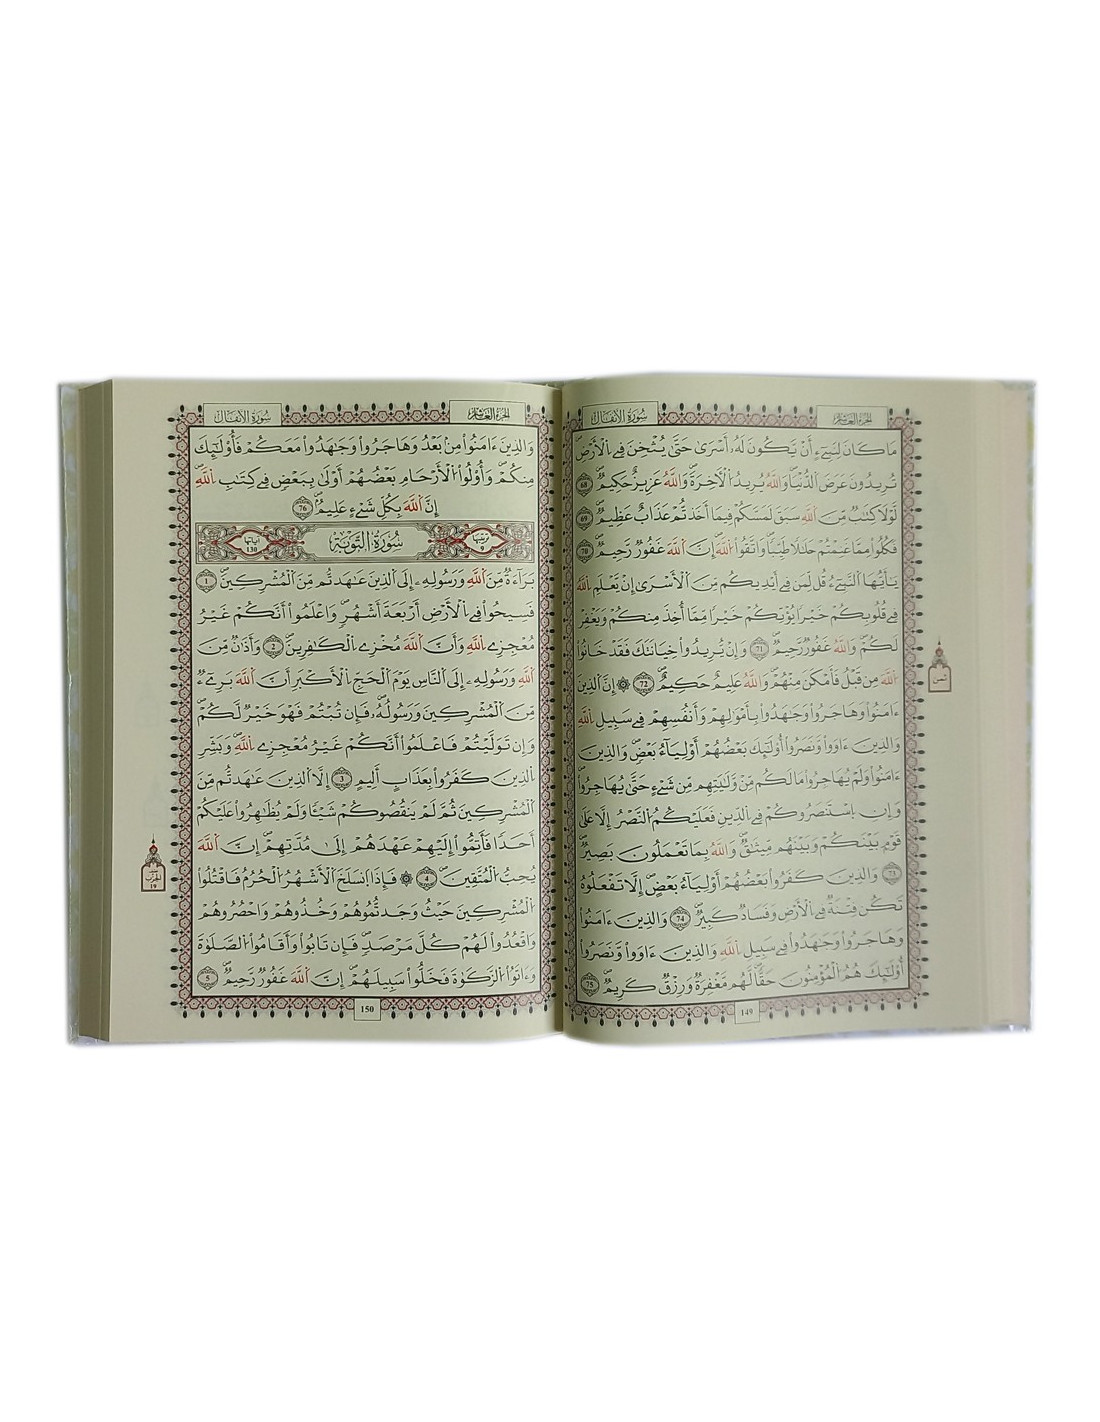 الجزء العاشر
سورة الأنفال
مَا كَانَ لِنَبِيٓءٍ أَنْ يَّكُونَ لَهُۥٓ أَسْر۪يٰ حَتَّيٰ يُثْخِنَ فِے اِ۬لَارْضِۖ
تُرِيدُونَ عَرَضَ اَ۬لدُّنْي۪ا وَاللَّهُ يُرِيدُ اُ۬لَاخِرَةَۖ وَاللَّهُ عَزِيزٌ حَكِيمٌۖ 68
لَّوْلَا كِتَٰبٞ مِّنَ اَ۬للَّهِ سَبَقَ لَمَسَّكُمْ فِيمَآ أَخَذتُّمْ عَذَابٌ عَظِيمٞۖ 69
فَكُلُواْ مِمَّا غَنِمْتُمْ حَلَٰلاٗ طَيِّباٗۖ وَاتَّقُواْ اُ۬للَّهَۖ إِنَّ اَ۬للَّهَ غَفُورٞ رَّحِيمٞۖ 70
يَٰٓأَيُّهَا اَ۬لنَّبِيٓءُ قُل لِّمَن فِےٓ أَيْدِيكُم مِّنَ اَ۬لَاسْر۪يٰٓ إِنْ يَّعْلَمِ اِ۬للَّهُ
فِے قُلُوبِكُمْ خَيْراٗ يُوتِكُمْ خَيْراٗ مِّمَّآ أُخِذَ مِنكُمْ وَيَغْفِرْ
لَكُمْۖ وَاللَّهُ غَفُورٞ رَّحِيمٞۖ 71 وَإِنْ يُّرِيدُواْ خِيَانَتَكَ فَقَدْ خَانُواْ
اُ۬للَّهَ مِن قَبْلُ فَأَمْكَنَ مِنْهُمْۖ وَاللَّهُ عَلِيمٌ حَكِيمٌۖ 72 ۞ إِنَّ اَ۬لذِينَ
ءَامَنُواْ وَهَاجَرُواْ وَجَٰهَدُواْ بِأَمْوَٰلِهِمْ وَأَنفُسِهِمْ فِے سَبِيلِ اِ۬للَّهِ
وَالذِينَ ءَاوَواْ وَّنَصَرُوٓاْ أُوْلَٰٓئِكَ بَعْضُهُمُۥٓ أَوْلِيَآءُ بَعْضٖۖ وَالذِينَ
ءَامَنُواْ وَلَمْ يُهَاجِرُواْ مَا لَكُم مِّنْ وَّلَٰيَتِهِم مِّن شَےْءٍ حَتَّيٰ يُهَاجِرُواْۖ
وَإِنِ اِ۪سْتَنصَرُوكُمْ فِے اِ۬لدِّينِ فَعَلَيْكُمُ اُ۬لنَّصْرُ إِلَّا عَلَيٰ
قَوْمِۢ بَيْنَكُمْ وَبَيْنَهُم مِّيثَٰقٞۖ وَاللَّهُ بِمَا تَعْمَلُونَ بَصِيرٞۖ
73 وَالذِينَ كَفَرُواْ بَعْضُهُمُۥٓ أَوْلِيَآءُ بَعْضٍۖ إِلَّا تَفْعَلُوهُ
تَكُن فِتْنَةٞ فِے اِ۬لَارْضِ وَفَسَادٞ كَبِيرٞۖ 74 وَالذِينَ ءَامَنُواْ
وَهَاجَرُواْ وَجَٰهَدُواْ فِے سَبِيلِ اِ۬للَّهِ وَالذِينَ ءَاوَواْ وَّنَصَرُوٓاْ
أُوْلَٰٓئِكَ هُمُ اُ۬لْمُومِنُونَ حَقّاٗۖ لَّهُم مَّغْفِرَةٞ وَرِزْقٞ كَرِيمٞۖ 75
ثمن
149
الجزء العاشر
سورة الأنفال
وَالذِينَ ءَامَنُواْ مِنۢ بَعْدُ وَهَاجَرُواْ وَجَٰهَدُواْ مَعَكُمْ فَأُوْلَٰٓئِكَ
مِنكُمْۖ وَأُوْلُواْ اُ۬لَارْحَامِ بَعْضُهُمُۥٓ أَوْلَيٰ بِبَعْضٖ فِے كِتَٰبِ اِ۬للَّهِۖ
إِنَّ اَ۬للَّهَ بِكُلِّ شَےْءٍ عَلِيمٞۖ 76
ترتيبها 9
سورة التوبة
آياتها 130
بَرَآءَةٞ مِّنَ اَ۬للَّهِ وَرَسُولِهِۦٓ إِلَي اَ۬لذِينَ عَٰهَدتُّم مِّنَ اَ۬لْمُشْرِكِينَۖ 1
فَسِيحُواْ فِے اِ۬لَارْضِ أَرْبَعَةَ أَشْهُرٖۖ وَاعْلَمُوٓاْ أَنَّكُمْ غَيْرُ
مُعْجِزِے اِ۬للَّهِ وَأَنَّ اَ۬للَّهَ مُخْزِے اِ۬لْكٰ۪فِرِينَۖ 2 وَأَذَٰنٞ مِّنَ
اَ۬للَّهِ وَرَسُولِهِۦٓ إِلَي اَ۬لنَّاسِ يَوْمَ اَ۬لْحَجِّ اِ۬لَاكْبَرِ أَنَّ اَ۬للَّهَ بَرِےٓءٞ
مِّنَ اَ۬لْمُشْرِكِينَ وَرَسُولُهُۥۖ فَإِن تُبْتُمْ فَهُوَ خَيْرٞ لَّكُمْۖ
وَإِن تَوَلَّيْتُمْ فَاعْلَمُوٓاْ أَنَّكُمْ غَيْرُ مُعْجِزِے اِ۬للَّهِۖ وَبَشِّرِ
اِ۬لذِينَ كَفَرُواْ بِعَذَابٍ أَلِيمٍۖ 3 إِلَّا اَ۬لذِينَ عَٰهَدتُّم مِّنَ
اَ۬لْمُشْرِكِينَ ثُمَّ لَمْ يَنقُصُوكُمْ شَيْـٔاٗ وَلَمْ يُظَٰهِرُواْ عَلَيْكُمُۥٓ
أَحَداٗ فَأَتِمُّوٓاْ إِلَيْهِمْ عَهْدَهُمُۥٓ إِلَيٰ مُدَّتِهِمُۥٓۖ إِنَّ اَ۬للَّهَ
يُحِبُّ اُ۬لْمُتَّقِينَۖ 4 ۞ فَإِذَا اَ۪نسَلَخَ اَ۬لَاشْهُرُ اُ۬لْحُرُمُ فَاقْتُلُواْ
اُ۬لْمُشْرِكِينَ حَيْثُ وَجَدتُّمُوهُمْ وَخُذُوهُمْ وَاحْصُرُوهُمْ
وَاقْعُدُواْ لَهُمْ كُلَّ مَرْصَدٖۖ فَإِن تَابُواْ وَأَقَامُواْ اُ۬لصَّلَوٰةَ
وَءَاتَوُاْ اُ۬لزَّكَوٰةَ فَخَلُّواْ سَبِيلَهُمُۥٓۖ إِنَّ اَ۬للَّهَ غَفُورٞ رَّحِيمٞۖ 5
الحزب 19
150